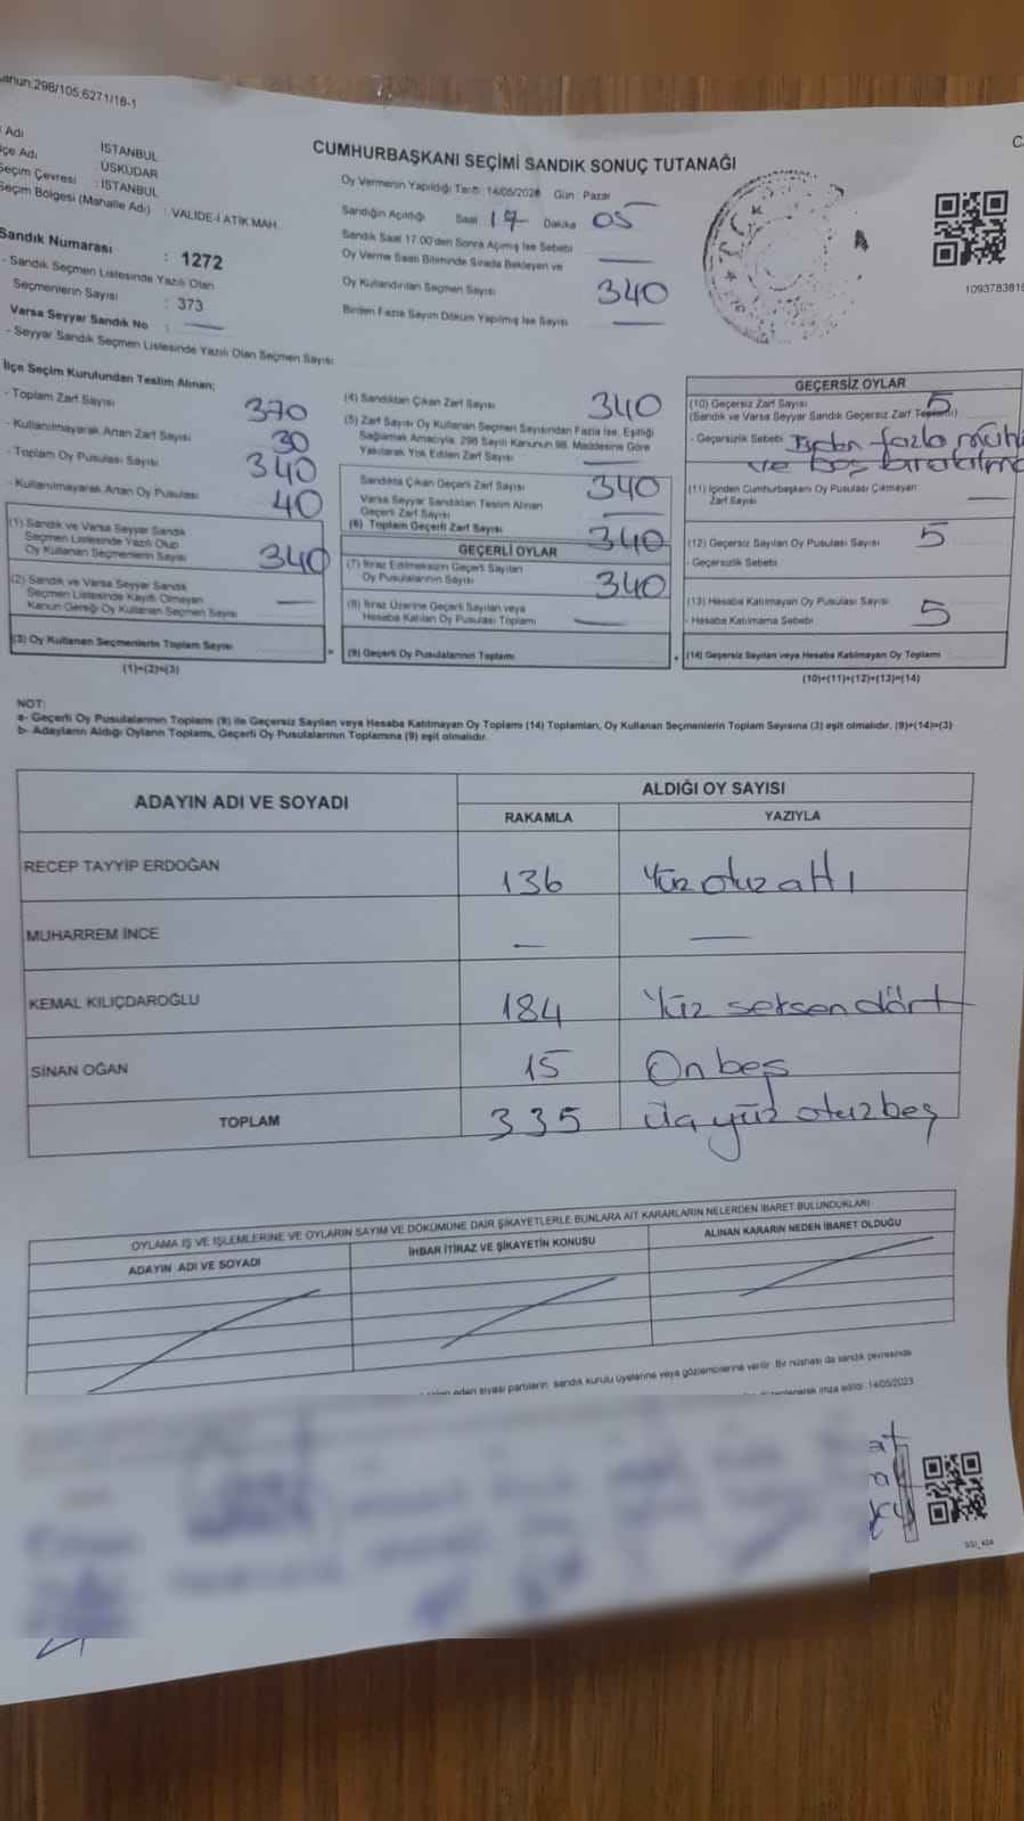 anun:298/105,6271/18-1
Adı
İSTANBUL
çe Adı
ÜSKÜDAR
Seçim Çevresi : İSTANBUL
Seçim Bölgesi (Mahalle Adı) : VALİDE-İ ATİK MAH.
Sandık Numarası : 1272
- Sandık Seçmen Listesinde Yazılı Olan
Seçmenlerin Sayısı : 373
Varsa Seyyar Sandık No :
- Seyyar Sandık Seçmen Listesinde Yazılı Olan Seçmen Sayısı
CUMHURBAŞKANI SEÇİMİ SANDIK SONUÇ TUTANAĞI
Oy Vermenin Yapıldığı Tarih: 14/05/2023 Gün Pazar
Sandığın Açıldığı Saat 17 Dakika 05
Sandık Saat 17.00'den Sonra Açılmış İse Sebebi
Oy Verme Saati Bitiminde Sırada Bekleyen ve
Oy Kullandırılan Seçmen Sayısı 340
Birden Fazla Sayım Döküm Yapılmış İse Sayısı
C
1093783819
İlçe Seçim Kurulundan Teslim Alınan;
- Toplam Zarf Sayısı 370
- Kullanılmayarak Artan Zarf Sayısı 30
- Toplam Oy Pusulası Sayısı 340
- Kullanılmayarak Artan Oy Pusulası 40
(1) Sandık ve Varsa Seyyar Sandık
Seçmen Listesinde Yazılı Olup
Oy Kullanan Seçmenlerin Sayısı 340
(2) Sandık ve Varsa Seyyar Sandık
Seçmen Listesinde Kayıtlı Olmayan
Kanun Gereği Oy Kullanan Seçmen Sayısı
(3) Oy Kullanan Seçmenlerin Toplam Sayısı
(1)+(2)=(3)
(4) Sandıktan Çıkan Zarf Sayısı 340
(5) Zarf Sayısı Oy Kullanan Seçmen Sayısından Fazla İse, Eşitliği
Sağlamak Amacıyla, 298 Sayılı Kanunun 98. Maddesine Göre
Yakılarak Yok Edilen Zarf Sayısı
Sandıkta Çıkan Geçerli Zarf Sayısı 340
Varsa Seyyar Sandıktan Teslim Alınan
Geçerli Zarf Sayısı
(6) Toplam Geçerli Zarf Sayısı 340
GEÇERLİ OYLAR
(7) İtiraz Edilmeksizin Geçerli Sayılan
Oy Pusulalarının Sayısı 340
(8) İtiraz Üzerine Geçerli Sayılan veya
Hesaba Katılan Oy Pusulası Toplamı
(9) Geçerli Oy Pusulalarının Toplamı
GEÇERSİZ OYLAR
(10) Geçersiz Zarf Sayısı 5
(Sandık ve Varsa Seyyar Sandık Geçersiz Zarf Toplamı)
- Geçersizlik Sebebi Birden fazla müh
ve boş bırakılma
(11) İçinden Cumhurbaşkanı Oy Pusulası Çıkmayan
Zarf Sayısı
(12) Geçersiz Sayılan Oy Pusulası Sayısı 5
- Geçersizlik Sebebi
(13) Hesaba Katılmayan Oy Pusulası Sayısı 5
- Hesaba Katılmama Sebebi
(14) Geçersiz Sayılan veya Hesaba Katılmayan Oy Toplamı
(10)+(11)+(12)+(13)=(14)
NOT:
a- Geçerli Oy Pusulalarının Toplamı (9) ile Geçersiz Sayılan veya Hesaba Katılmayan Oy Toplamı (14) Toplamları, Oy Kullanan Seçmenlerin Toplam Sayısına (3) eşit olmalıdır. (9)+(14)=(3)
b- Adayların Aldığı Oyların Toplamı, Geçerli Oy Pusulalarının Toplamına (9) eşit olmalıdır.
ADAYIN ADI VE SOYADI
ALDIĞI OY SAYISI
RAKAMLA YAZIYLA
RECEP TAYYİP ERDOĞAN 136 Yüz otuz altı
MUHARREM İNCE
KEMAL KILIÇDAROĞLU 184 Yüz seksen dört
SİNAN OĞAN 15 On beş
TOPLAM 335 Üç yüz otuz beş
OYLAMA İŞ VE İŞLEMLERİNE VE OYLARIN SAYIM VE DÖKÜMÜNE DAİR ŞİKAYETLERLE BUNLARA AİT KARARLARIN NELERDEN İBARET BULUNDUKLARI
ADAYIN ADI VE SOYADI İHBAR İTİRAZ VE ŞİKAYETİN KONUSU ALINAN KARARIN NEDEN İBARET OLDUĞU
eden siyasi partilerin, sandık kurulu üyelerine veya gözlemcilerine verilir. Bir nüshası da sandık çevresinde
imza edildi. 14/05/2023